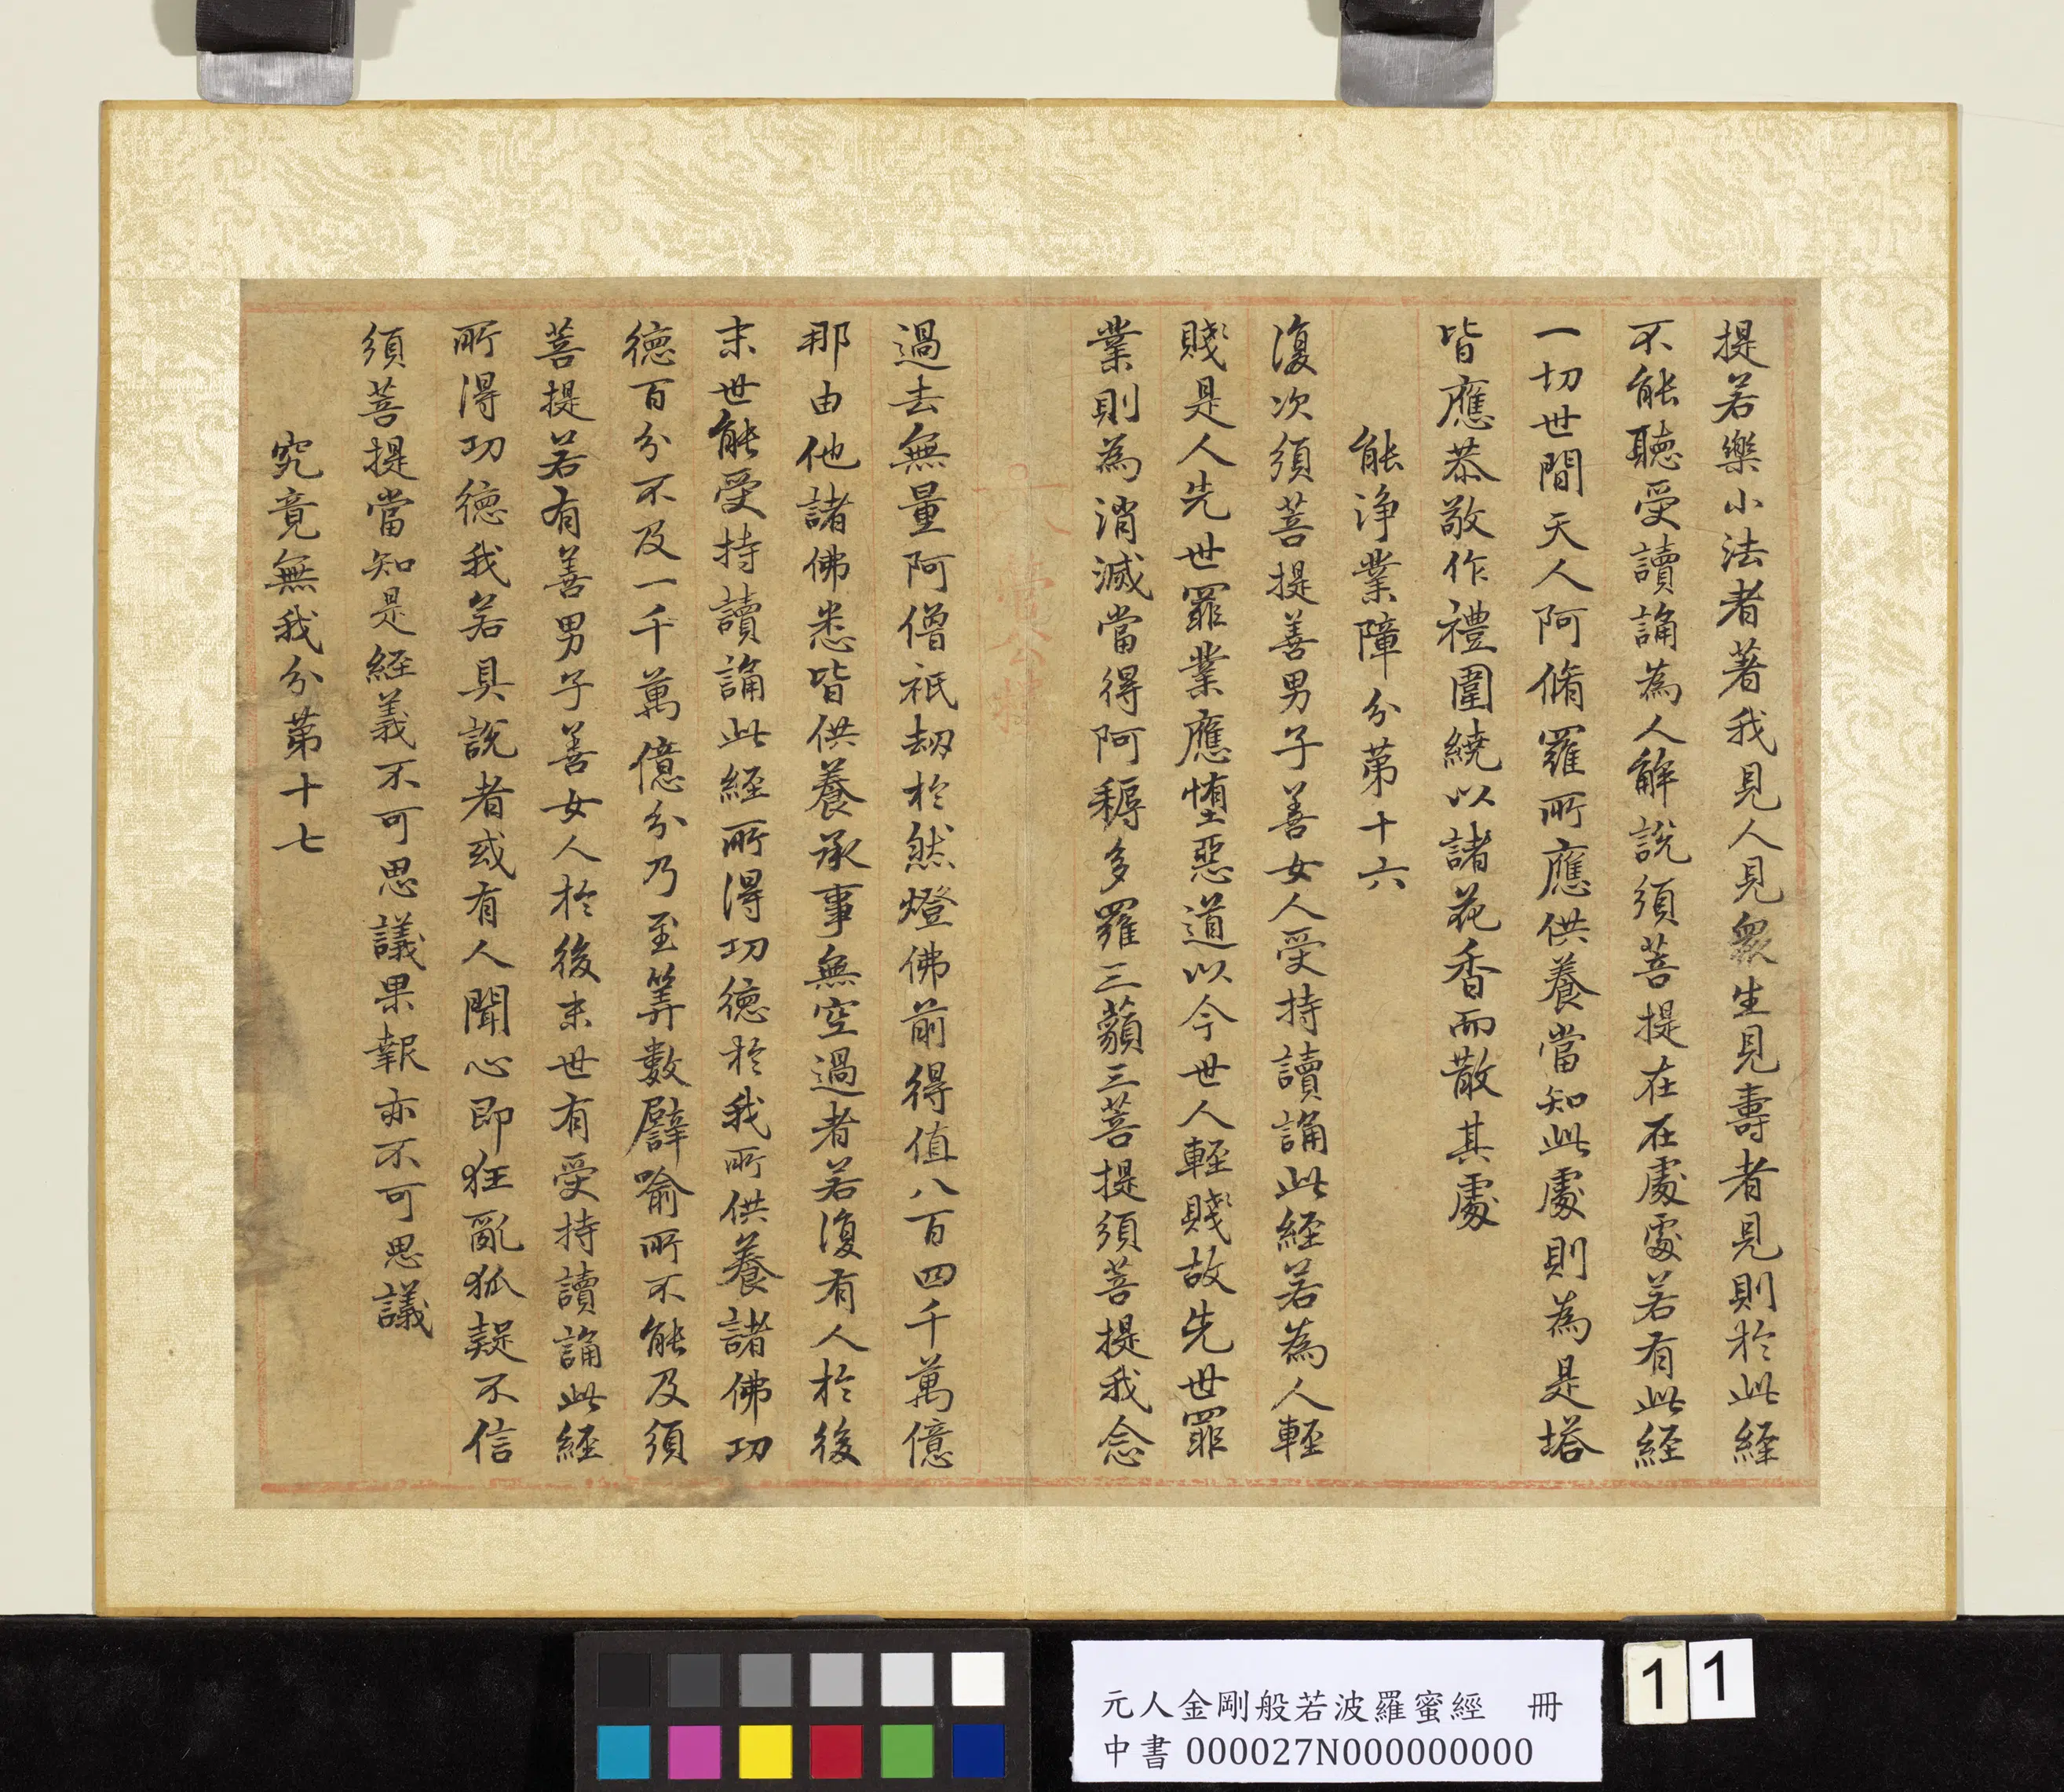 提若樂小法者著我見人見衆生見壽者見則於此経
不能聽受讀誦為人解說須菩提在在處處若有此経
一切世間天人阿脩羅所應供養當知此處則為是塔
皆應恭敬作禮圍繞以諸花香而散其處
能淨業障分第十六
復次須菩提善男子善女人受持讀誦此経若為人輕
賤是人先世罪業應堕惡道以今世人輕賤故先世罪
業則為消滅當得阿耨多羅三藐三菩提須菩提我念
過去無量阿僧祇劫於然燈佛前得值八百四千萬億
那由他諸佛悉皆供養承事無空過者若復有人於後
末世能受持讀誦此経所得功德於我所供養諸佛功
德百分不及一千萬億分乃至筭數譬喻所不能及須
菩提若有善男子善女人於後末世有受持讀誦此経
所得功德我若具說者或有人聞心即狂亂狐疑不信
須菩提當知是経義不可思議果報亦不可思議
究竟無我分第十七
元人金剛般若波羅蜜經 冊
中書 000027N000000000
11